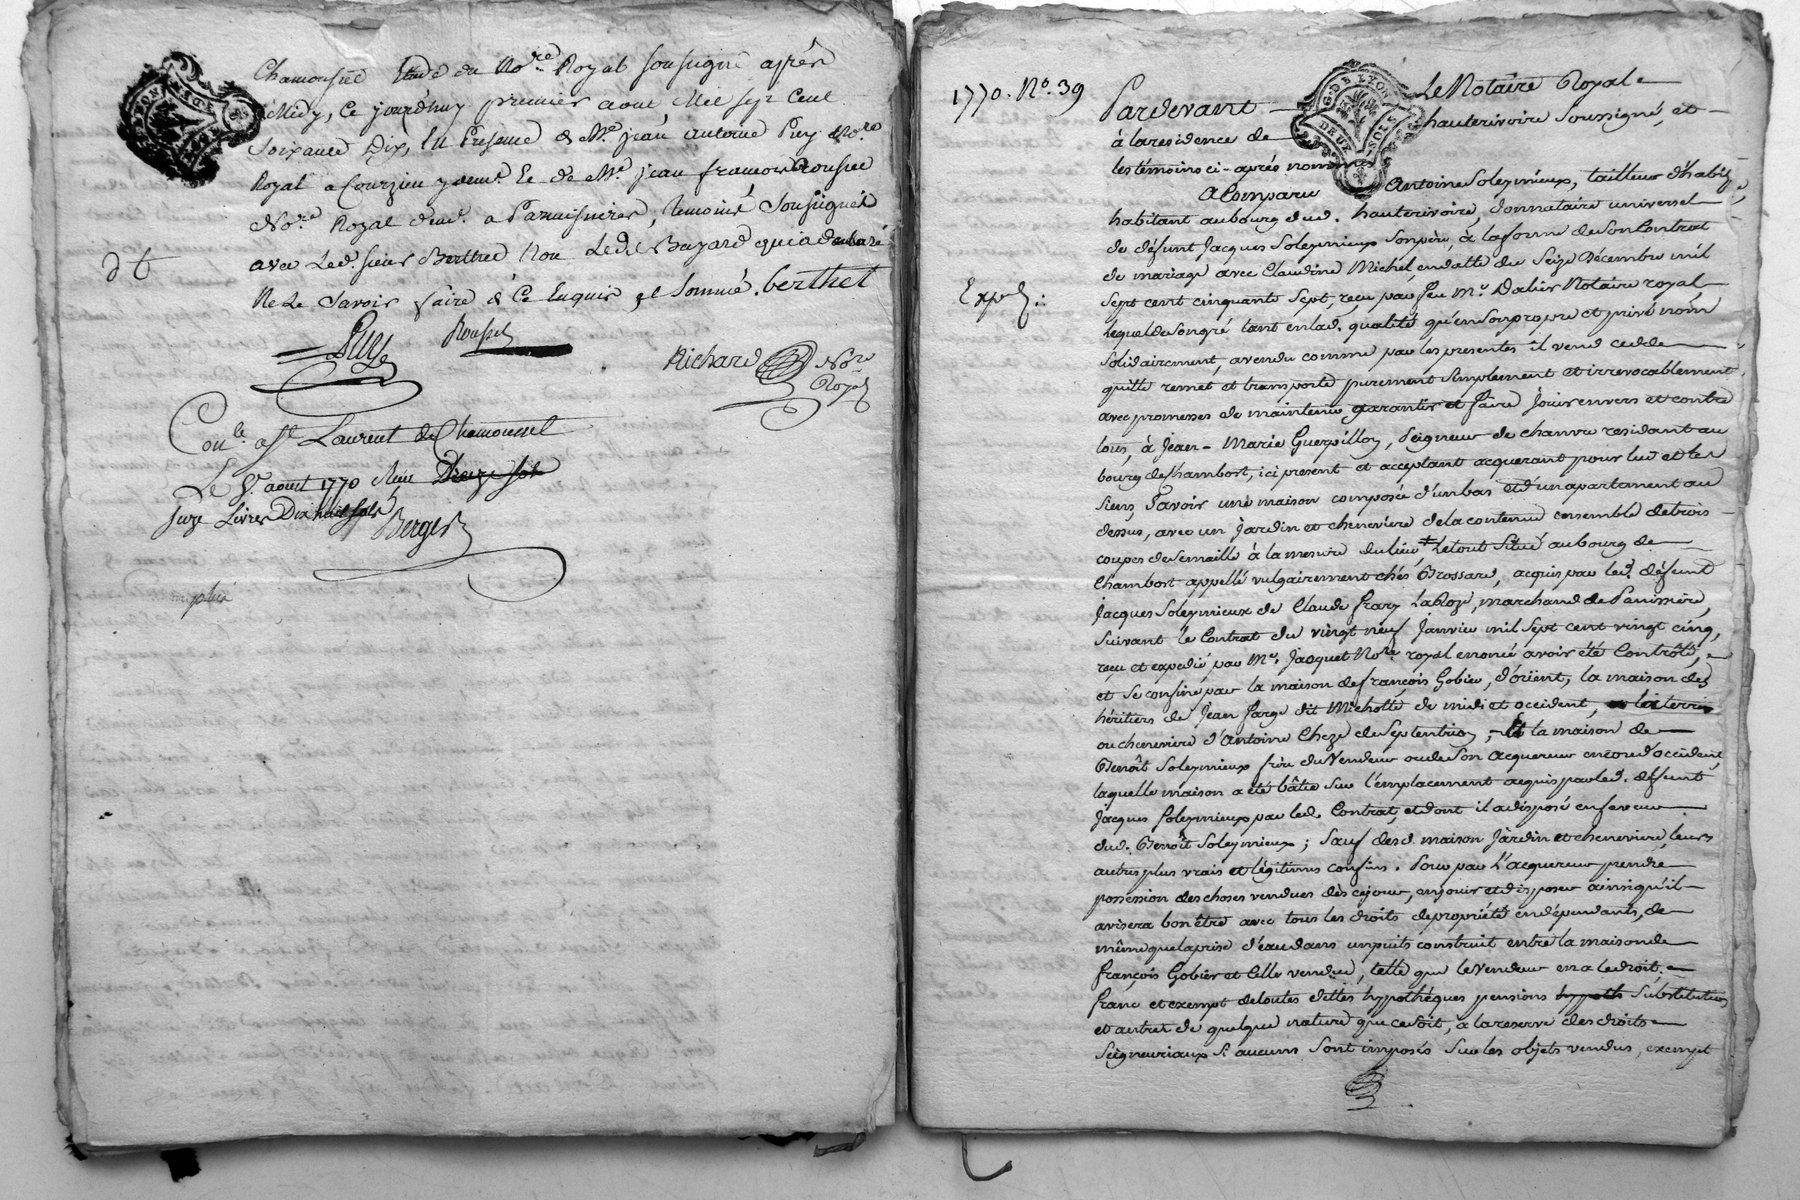 Chamousset Etude du No.re Royal soussigné après
Midy, ce jourdhuy premier aout Mil sept Cent
soixante Dix, En Présence de Me. jean antoine Puy No.re
Royal a Courzieu y demt. Et de Me. jean francois Rousset
No.re Royal demt. a Pannissieres, temoins soussignés
avec Led. sieur Berthet Non Led. Bayard qui a declaré
Ne Le savoir faire de Ce Enquis et sommé. berthet
Puy Rousset
Richard No.re
Royal
Con.le a st Laurent de Chamousset
Le 8.e aoust 1770 Reçu
Livres Dix huit sols
Berger
1770. No. 39
Expd.:
G. DE LYON
DEUX SOLS
Pardevant Le Notaire Royal
à la residence de hauterivoire soussigné, et
les témoins ci-après nommés
A Comparu Antoine Soleymieux, tailleur d'habits,
habitant au bourg dud. hauterivoire, donnataire universel
de défunt Jacques Soleymieux son père, à la forme de son Contrat
de mariage avec Claudine Michel, en datte du seize Décembre mil
sept cent cinquante sept, reçu par feu Me. Dalier Notaire royal
lequel de son gré tant en lad. qualité qu'en son propre et privé nom
solidairement, a vendu comme par les presentes il vend cedde
quitte remet et transporte purement simplement et irrevocablement
avec promesses de maintenir garantir et faire jouir envers et contre
tous, à Jean-Marie Guerpillon, Seigneur de chanvre residant au
bourg de Chambost, ici present et acceptant acquerant pour lui et les
siens, Savoir une maison composée d'un bas et d'un apartement au
dessus, avec un Jardin et cheneviere de la contenue ensemble de trois
coupes de semaille à la mesure du lieu Le tout situé au bourg de
Chambost appellé vulgairement chés Brossard, acquis par led. défunt
Jacques Soleymieux de Claude Lablze, marchand de Panissiere,
suivant le Contrat du vingt neuf Janvier mil sept cent vingt cinq,
reçu et expedié par Me. Jacquet No.re royal enoncé avoir été Contrôlé,
et se confine par la maison de françois Gobier, d'orient, la maison des
héritiers de Jean Farge dit Michotte de midi et occident, la terre
ou cheneviere d'Antoine Cheze de septentrion, et la maison de
Benoît Soleymieux frère du Vendeur ou de son acquereur encore d'occident,
laquelle maison a été bâtie sur l'emplacement acquis par led. défunt
Jacques Soleymieux par led. Contrat, et dont il a disposé en faveur
dud. Benoît Soleymieux; Sauf desd. maison Jardin et cheneviere leurs
autres plus vrais et légitimes confins. Pour par L'acquereur prendre
possession des choses vendues dès ce jour, en jouir et disposer ainsi qu'il
avisera bon être avec tous les droits de propriété en dépendants, de
même que la prise d'eau dans un puits construit entre la maison de
françois Gobier et Celle vendue, telle que le Vendeur en a le droit.
franc et exempt de toutes dettes hypothéques pensions substitutions
et autres de quelque nature que ce soit, à la reserve des droits
Seigneuriaux si aucuns sont imposés sur les objets vendus, exempt